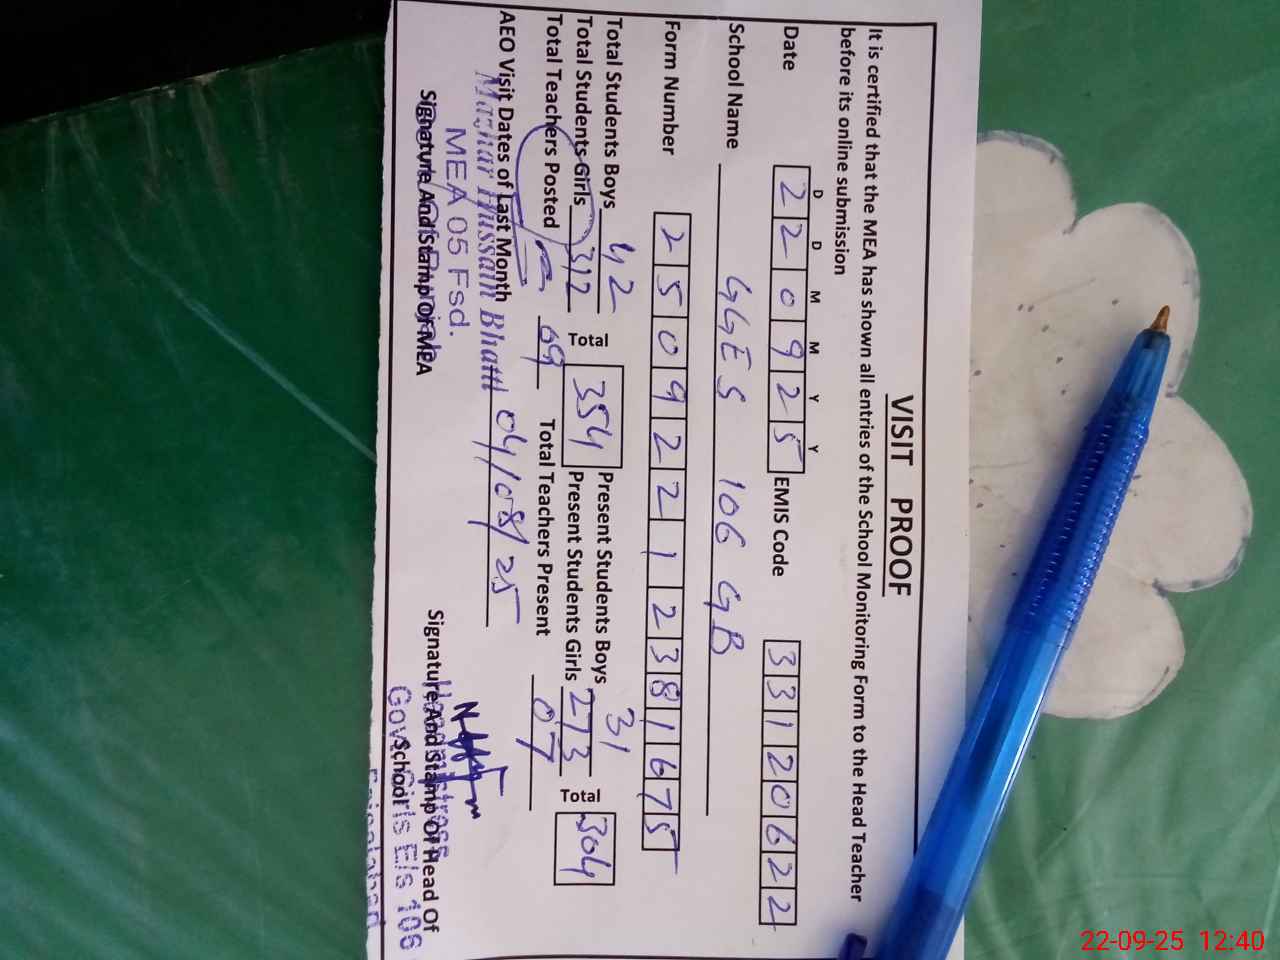 VISIT PROOF
It is certified that the MEA has shown all entries of the School Monitoring Form to the Head Teacher
before its online submission
D D M M Y Y
Date 220925 EMIS Code 33120622
School Name GGES 106 GB
Form Number 25092212381675
Total Students Boys 42 Present Students Boys 31
Total 354 Total 304
Total Students Girls 312 Present Students Girls 273
Total Teachers Posted 09 Total Teachers Present 07
AEO Visit Dates of Last Month 04/08/25
Mazhar Hussain Bhatti
MEA 05 Fsd.
Signature And Stamp Of MEA
Signature And Stamp Of Head Of
School
Headmistress
Govt. Girls E/s 106
Faisalabad
22-09-25 12:40